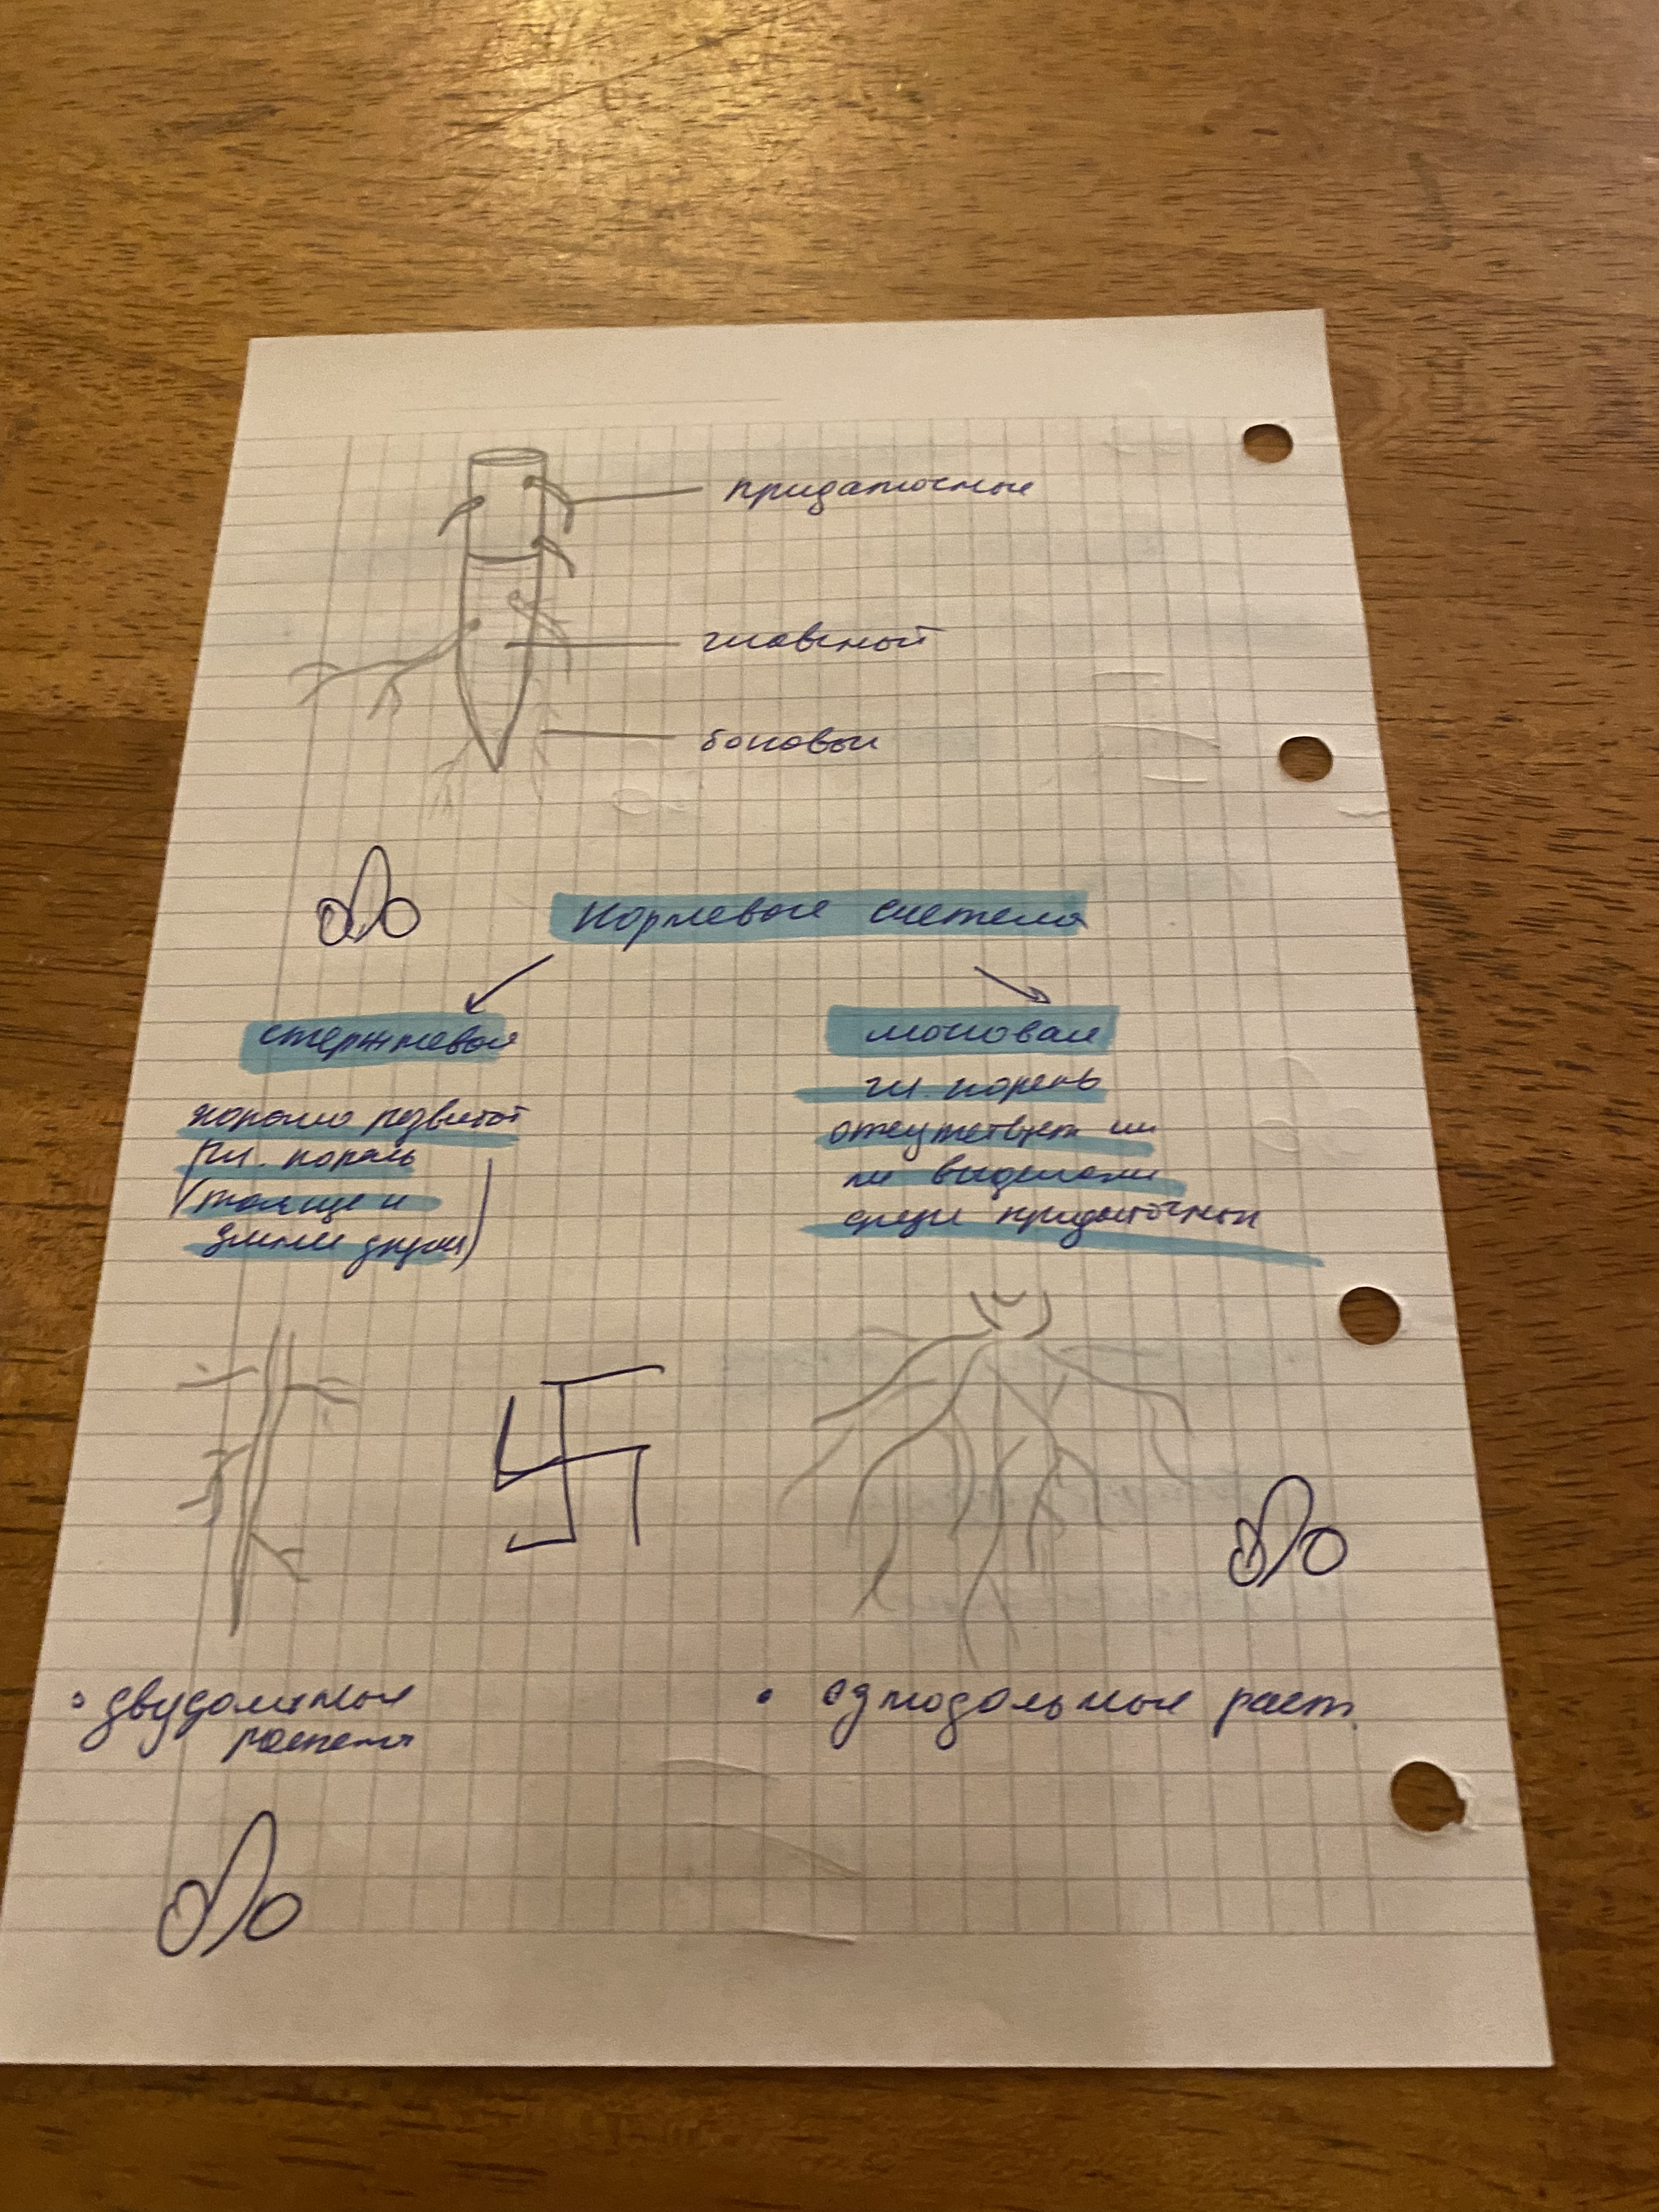 придаточные
главный
боковые
корневая система
стержневая
мочковая
хорошо развитый
гл. корень
(толще и
длинее других)
гл. корень
отсутствует или
не выделяется
среди придаточных
• двудольные
растения
• однодольные раст.